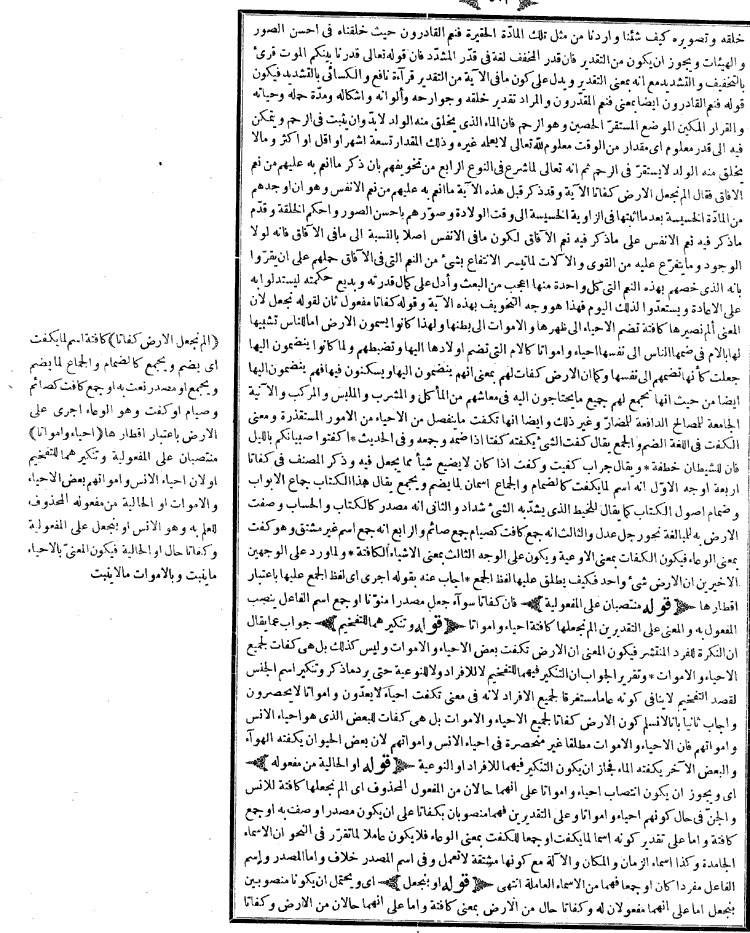 خلقه وتصويره كيف شئنا واردنا من مثل تلك المادّة الحقيرة فنعم القادرون حيث خلقناه فى احسن الصور
والهيئات ويجوز ان يكون من التقدير فان قدر المخفف لغة فى قدّر المشدّد فان قوله تعالى قدرنا بينكم الموت قرئ
بالتخفيف والتشديد مع انه بمعنى التقدير ويدل على كون مافى الآية من التقدير قرآءة نافع والكسائى بالتشديد فيكون
قوله فنعم القادرون ايضا بمعنى فنعم المقدّرون والمراد تقدير خلقه وجوارحه وألوانه واشكاله ومدّة حمله وحياته
والقرار المكين الموضع المستقرّ الحصين وهو الرحم فان الماء الذى يخلق منه الولد لابدّ وان يثبت فى الرحم ويتمكن
فيه الى قدر معلوم اى مقدار من الوقت معلوم لله تعالى لايعلمه غيره وذلك المقدار تسعة اشهر او اقل او اكثر ومالا
يخلق منه الولد لايستقرّ فى الرحم ثم انه تعالى لما شرع فى النوع الرابع من تخويفهم بان ذكر ماانعم به عليهم من نعم
الافاق فقال الم نجعل الارض كفاتا الآية وقد ذكر قبل هذه الآية ماانعم به عليهم من نعم الانفس وهو ان اوجدهم
من المادّة الخسيسة بعدما اثبتها فى الزاوية الخسيسة الى وقت الولادة وصوّرهم باحسن الصور واحكم الخلقة وقدّم
ماذكر فيه نعم الانفس على ماذكر فيه نعم الآفاق لكون مافى الانفس اصلا بالنسبة الى مافى الآفاق فانه لولا
الوجود ومايتفرّع عليه من القوى والآلات لماتيسر الانتفاع بشئ من النعم التى فى الآفاق حملهم على ان يقرّوا
بانه الذى خصهم بهذه النعم التى كل واحدة منها اعجب من البعث وأدل على كمال قدرته وبديع حكمته ليستدلوا به
على الاعادة ويستعدّوا لذلك اليوم فهذا هو وجه التخويف بهذه الآية وقوله كفاتا مفعول ثان لقوله نجعل لأن
المعنى ألم نصيرها كافتة تضم الاحياء الى ظهرها والاموات الى بطنها ولهذا كانوا يسمون الارض اما للناس تشبيها
لها بالام فى ضمها الناس الى نفسها احياء وامواتا كالام التى تضم اولادها اليها وتضبطهم ولما كانوا ينضمون اليها
جعلت كأنها تضمهم الى نفسها وكما ان الارض كفات لهم بمعنى انهم ينضمون اليها ويسكنون فيها فهم ينضمون اليها
ايضا من حيث انها تجمع لهم جميع مايحتاجون اليه فى معاشهم من المأكل والمشرب والملبس والمركب والآنية
الجامعة للمصالح الدافعة للمضارّ وغير ذلك وايضا انها تكفت ماينفصل من الاحياء من الامور المستقذرة ومعنى
الكفت فى اللغة الضم والجمع يقال كفت الشئ يكفته كفتا اذا ضمه وجمعه وفى الحديث * اكفتوا صبيانكم بالليل
فان للشيطان خطفة * ويقال جراب كفيت وكفت اذا كان لايضيع شيأ مما يجعل فيه وذكر المصنف فى كفاتا
اربعة اوجه الاوّل انه اسم لما يكفت كالضمام والجماع اسمان لما يضم ويجمع يقال هذا الكتاب جماع الابواب
وضمام اصول الكتاب كما يقال للخيط الذى يشدّ به الشئ شداد والثانى انه مصدر كالكتاب والحساب وصفت
الارض به للمبالغة نحو رجل عدل والثالث انه جمع كافت كصيام جمع صائم والرابع انه جمع اسم غير مشتق وهو كفت
بمعنى الوعاء فيكون الكفات بمعنى الاوعية ويكون على الوجه الثالث بمعنى الاشياء الكافتة * ولما ورد على الوجهين
الاخيرين ان الارض شئ واحد فكيف يطلق عليها لفظ الجمع * اجاب عنه بقوله اجرى اى لفظ الجمع عليها باعتبار
اقطارها ﴿قوله منتصبان على المفعولية﴾ فان كفاتا سوآء جعل مصدرا منوّنا او جمع اسم الفاعل ينصب
المفعول به والمعنى على التقديرين الم نجعلها كافتة احياء وامواتا ﴿قوله وتنكيرهما للتفخيم﴾ جواب عما يقال
ان النكرة للفرد المنتشر فيكون المعنى ان الارض تكفت بعض الاحياء والاموات وليس كذلك بل هى كفات لجميع
الاحياء والاموات * وتقرير الجواب ان التنكير فيهما للتفخيم لا للافراد ولا للنوعية حتى يرد ماذكر وتنكير اسم الجنس
لقصد التفخيم لاينافى كونه عاما مستغرقا لجميع الافراد لانه فى معنى تكفت احياء لايعدّون وامواتا لايحصرون
واجاب ثانيا بانا لانسلم كون الارض كفاتا لجميع الاحياء والاموات بل هى كفات للبعض الذى هو احياء الانس
وامواتهم فان الاحياء والاموات مطلقا غير منحصرة فى احياء الانس وامواتهم لان بعض الحيوان يكفته الهوآء
والبعض الآخر يكفته الماء فجاز ان يكون التنكير فيهما للافراد او النوعية ﴿قوله او الحالية من مفعوله﴾
اى ويجوز ان يكون انتصاب احياء وامواتا على انهما حالان من المفعول المحذوف اى الم نجعلها كافتة للانس
والجنّ فى حال كونهم احياء وامواتا وعلى التقديرين فهما منصوبان بكفاتا على ان يكون مصدرا وصف به او جمع
كافتة واما على تقدير كونه اسما لما يكفت او جمعا للكفت بمعنى الوعاء فلايكون عاملا لماتقرّر فى النحو ان الاسماء
الجامدة وكذا اسماء الزمان والمكان والآلة مع كونها مشتقة لاتعمل وفى اسم المصدر خلاف واما المصدر واسم
الفاعل مفردا كان او جمعا فهما من الاسماء العاملة انتهى ﴿قوله او بنجعل﴾ اى ويحتمل ان يكونا منصوبين
بنجعل اما على انهما مفعولان له وكفاتا حال من الارض بمعنى كافتة واما على انهما حالان من الارض وكفاتا
(الم نجعل الارض كفاتا) كافتة اسم لما يكفت
اى يضم ويجمع كالضمام والجماع لما يضم
ويجمع او مصدر نعت به او جمع كافت كصائم
وصيام او كفت وهو الوعاء اجرى على
الارض باعتبار اقطارها (احياء وامواتا)
منتصبان على المفعولية وتنكيرهما للتفخيم
او لان احياء الانس وامواتهم بعض الاحياء
والاموات او الحالية من مفعوله المحذوف
للعلم به وهو الانس او بنجعل على المفعولية
وكفاتا حال او الحالية فيكون المعنىّ بالاحياء
ماينبت وبالاموات مالاينبت